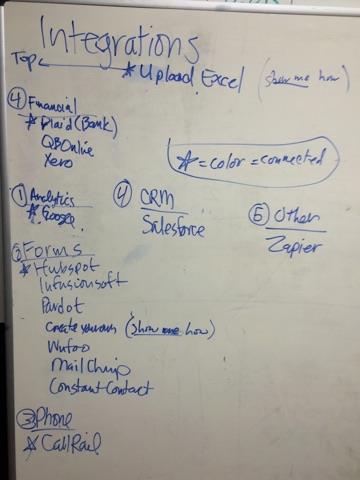 Integrations
Top ← ☆ Upload Excel (show me how)
④ Financial
☆ Plaid (Bank)
QBOnline
Xero
☆ = color = connected
① Analytics
☆ Google
④ CRM
Salesforce
⑤ Other
Zapier
② Forms
☆ Hubspot
Infusionsoft
Pardot
Create your own (show me how)
Wufoo
MailChimp
Constant Contact
③ Phone
☆ CallRail